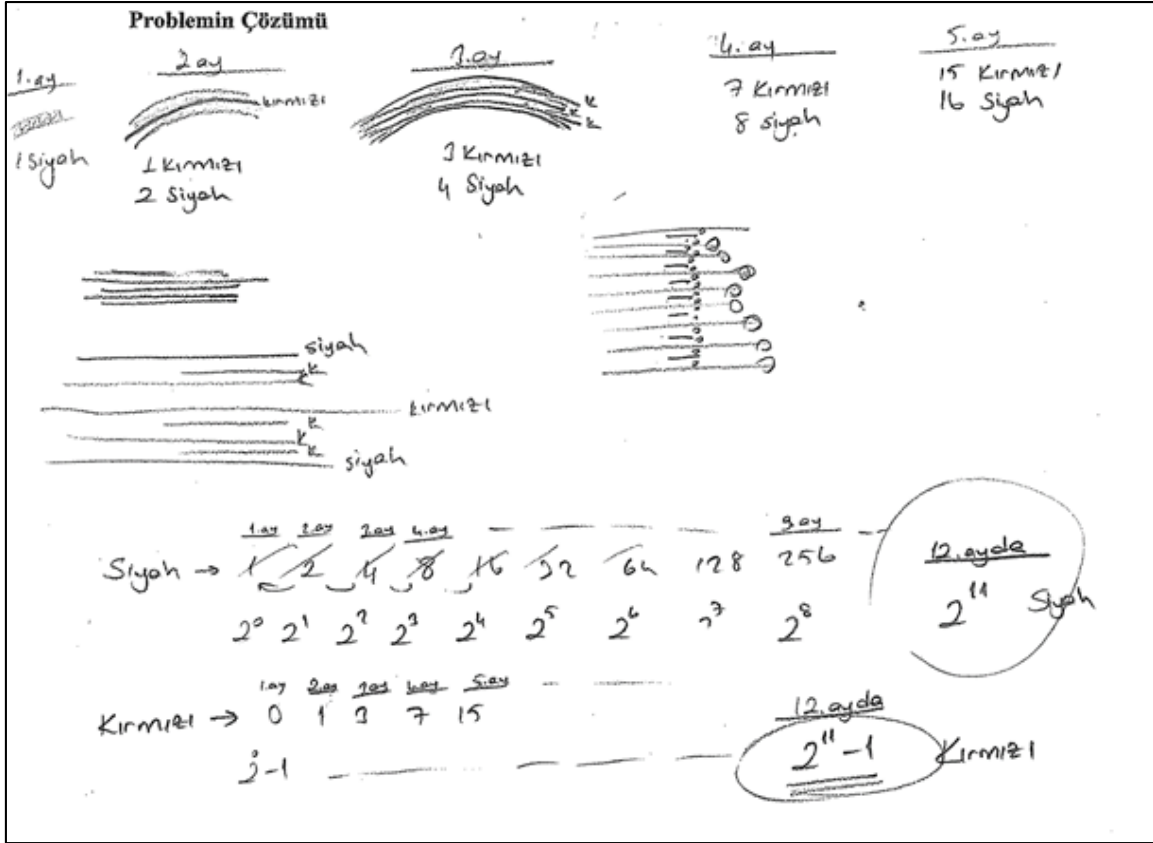 Problemin Çözümü
1.ay
1 siyah
2 ay
kırmızı
1 Kırmızı
2 Siyah
3.ay
K
K
K
3 Kırmızı
4 Siyah
4.ay
7 Kırmızı
8 siyah
5.ay
15 Kırmızı
16 Siyah
siyah
K
K
kırmızı
K
K
K
siyah
1.ay 2.ay 3.ay 4.ay 9.ay
Siyah → 1 2 4 8 16 32 64 128 256
2⁰ 2¹ 2² 2³ 2⁴ 2⁵ 2⁶ 2⁷ 2⁸
12.ayda
2¹¹ Siyah
1.ay 2.ay 3.ay 4.ay 5.ay
Kırmızı → 0 1 3 7 15
2⁰-1
12.ayda
2¹¹-1 Kırmızı